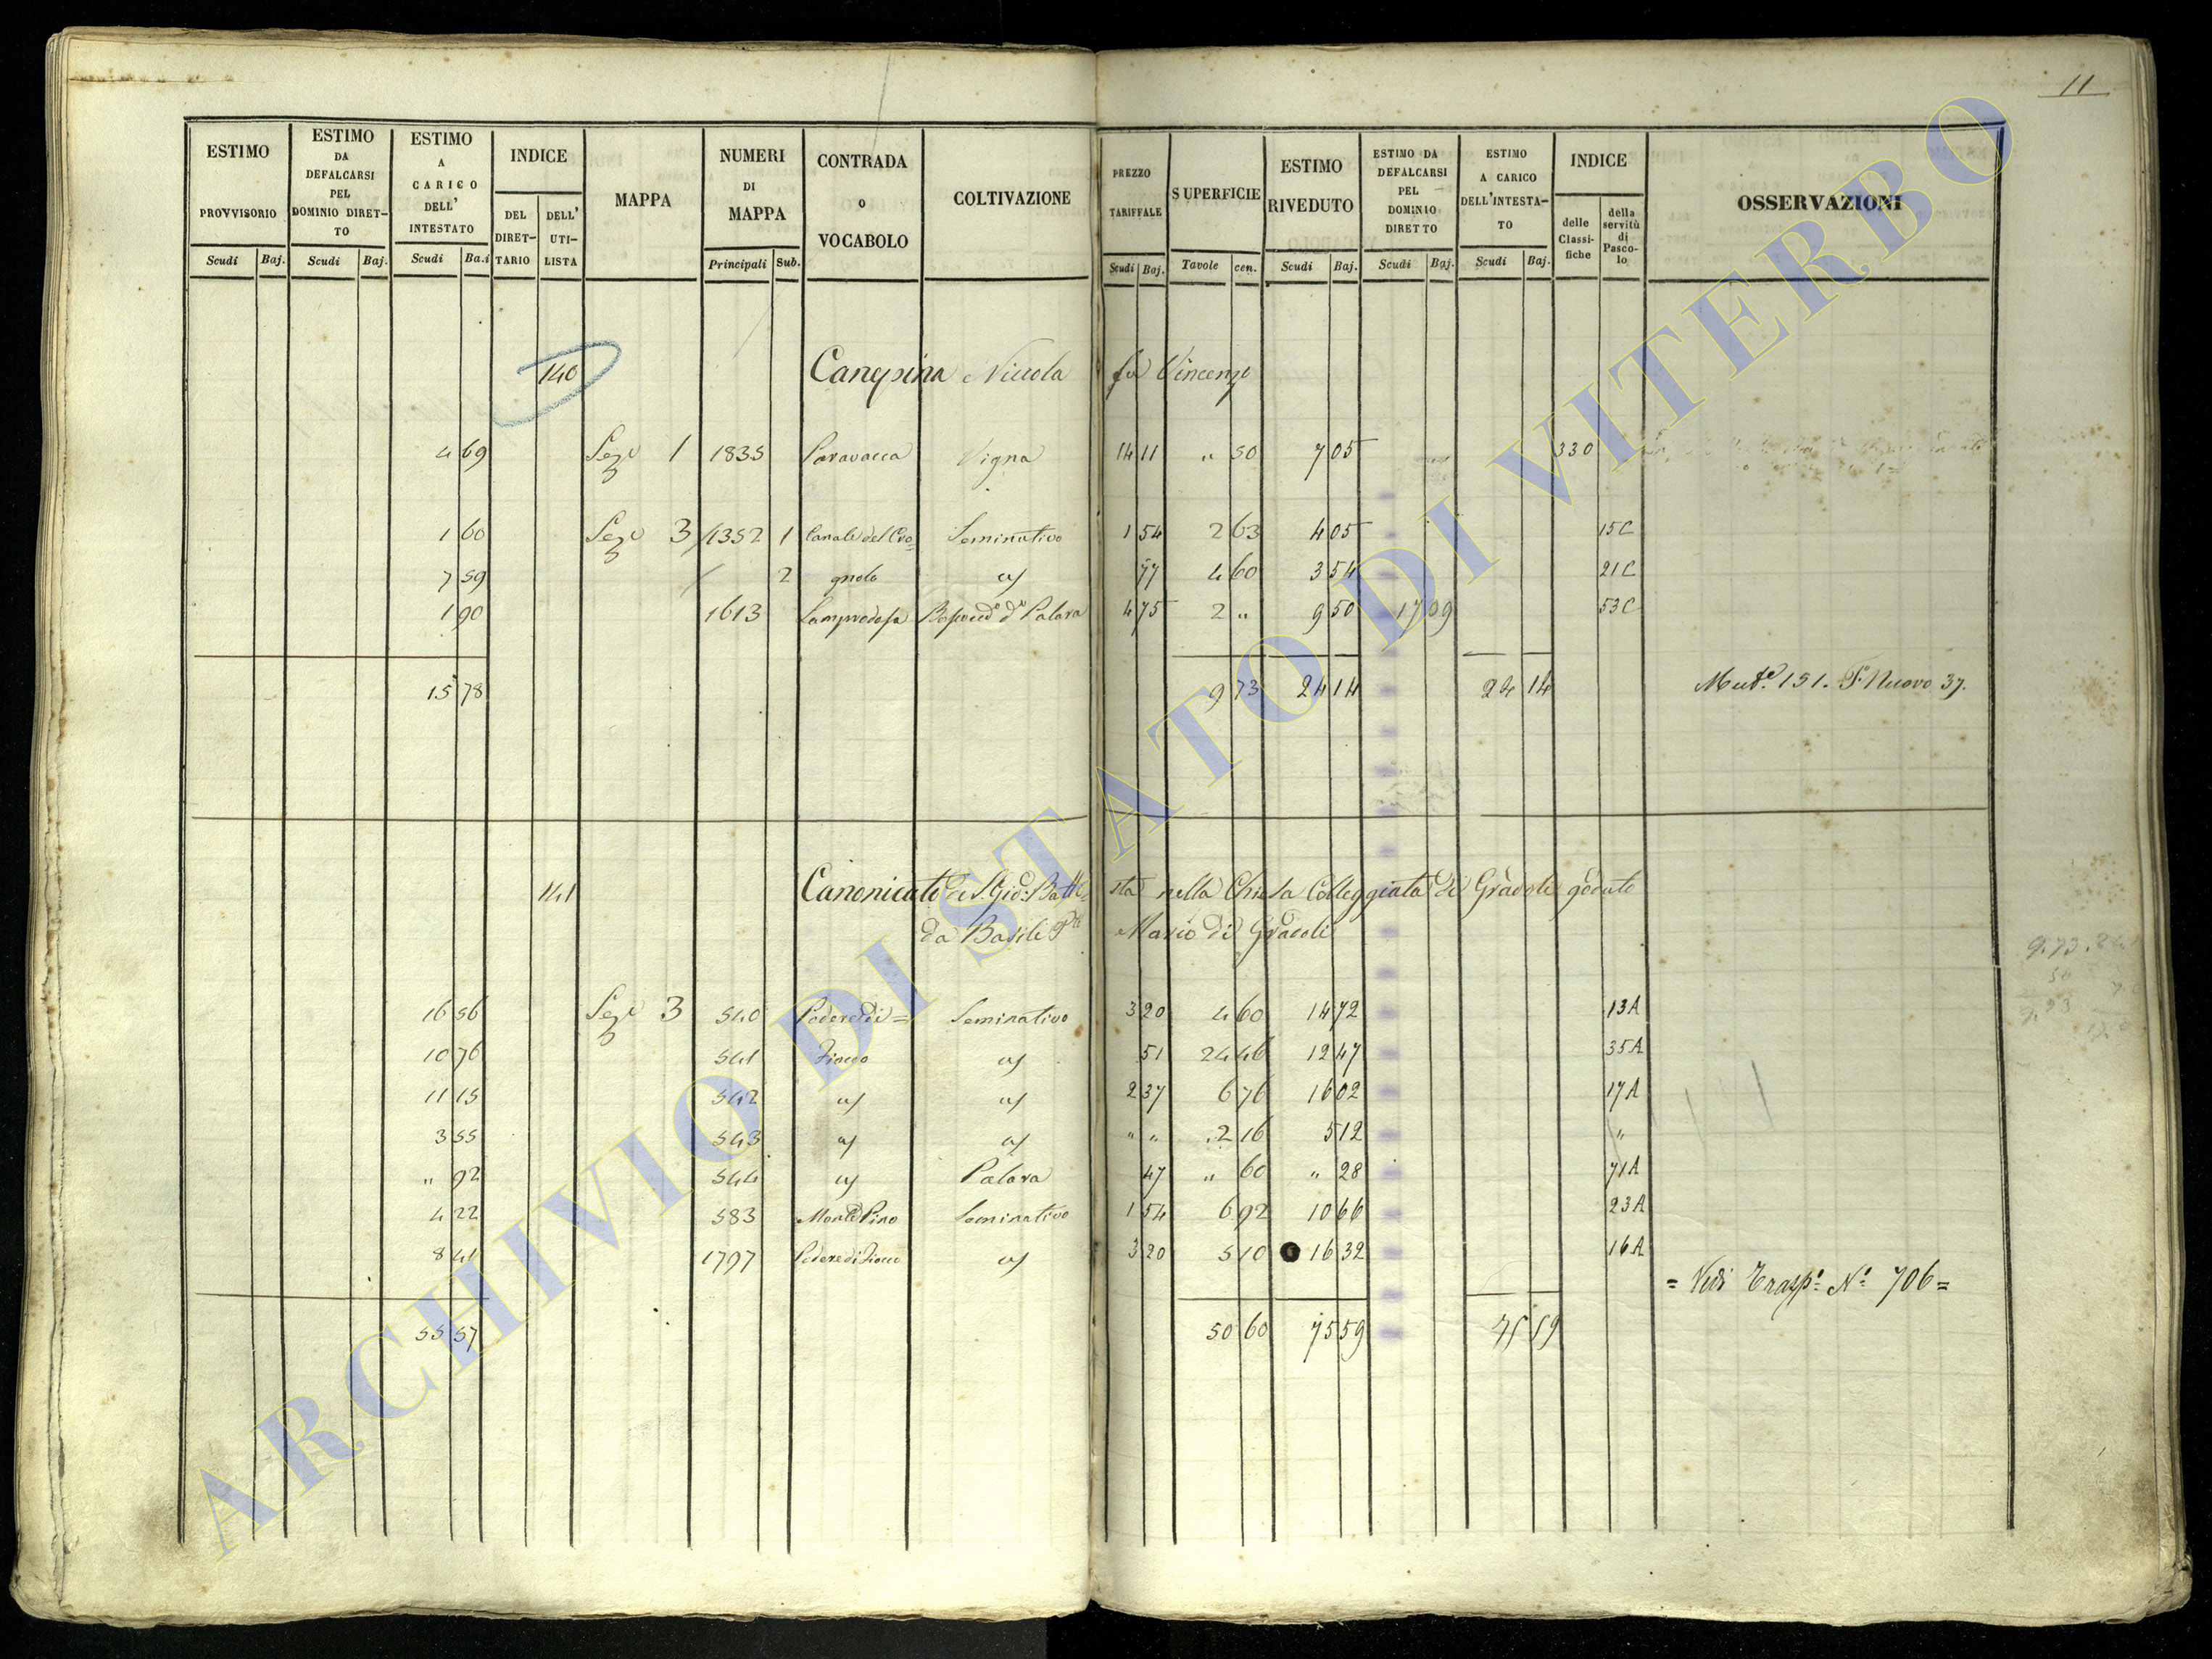 11
ESTIMO PROVVISORIO
ESTIMO DA DEFALCARSI PEL DOMINIO DIRET-TO
ESTIMO A CARICO DELL' INTESTATO
INDICE
DEL DIRET-TARIO
DELL' UTI-LISTA
MAPPA
NUMERI DI MAPPA
CONTRADA O VOCABOLO
COLTIVAZIONE
PREZZO TARIFFALE
SUPERFICIE
ESTIMO RIVEDUTO
ESTIMO DA DEFALCARSI PEL DOMINIO DIRETTO
ESTIMO A CARICO DELL'INTESTA-TO
INDICE
delle Classi-fiche
della servitù di Pasco-lo
OSSERVAZIONI
Scudi Baj. Scudi Baj. Scudi Ba.i Principali Sub. Scudi Baj. Tavole cen. Scudi Baj. Scudi Baj. Scudi Baj.
140 Niccola fu Vincenzo
4 69 Sez 1 1835 Vigna 14 11 " 50 7 05 330
1 60 Sez 3 1352 1 Seminativo 1 54 2 63 4 05 15C
7 59 2 77 4 60 3 54 21C
1 90 1613 4 75 2 " 9 50 53C
15 78 9 73 24 14 24 14 Nuovo 37.
141 Canonicato di S. Gio: Batti=sta nella Chiesa Colleggiata di Gradoli goduto
da Basili Mario di Gradoli
16 56 Sez 3 540 Podere di= Seminativo 3 20 4 60 14 72 13A
10 76 541 Fiocco 51 24 46 12 47 35A
11 15 542 2 37 6 76 16 02 17A
3 55 543 " " 2 16 5 12 "
" 92 544 Palara 47 " 60 " 28 71A
4 22 583 Monte Pino Seminativo 1 54 6 92 10 66 23A
8 41 1797 Podere di Fiocco 3 20 5 10 16 32 16A
= Vedi Trasp: N: 706 =
55 57 50 60 75 59 75 59
ARCHIVIO DI STATO DI VITERBO